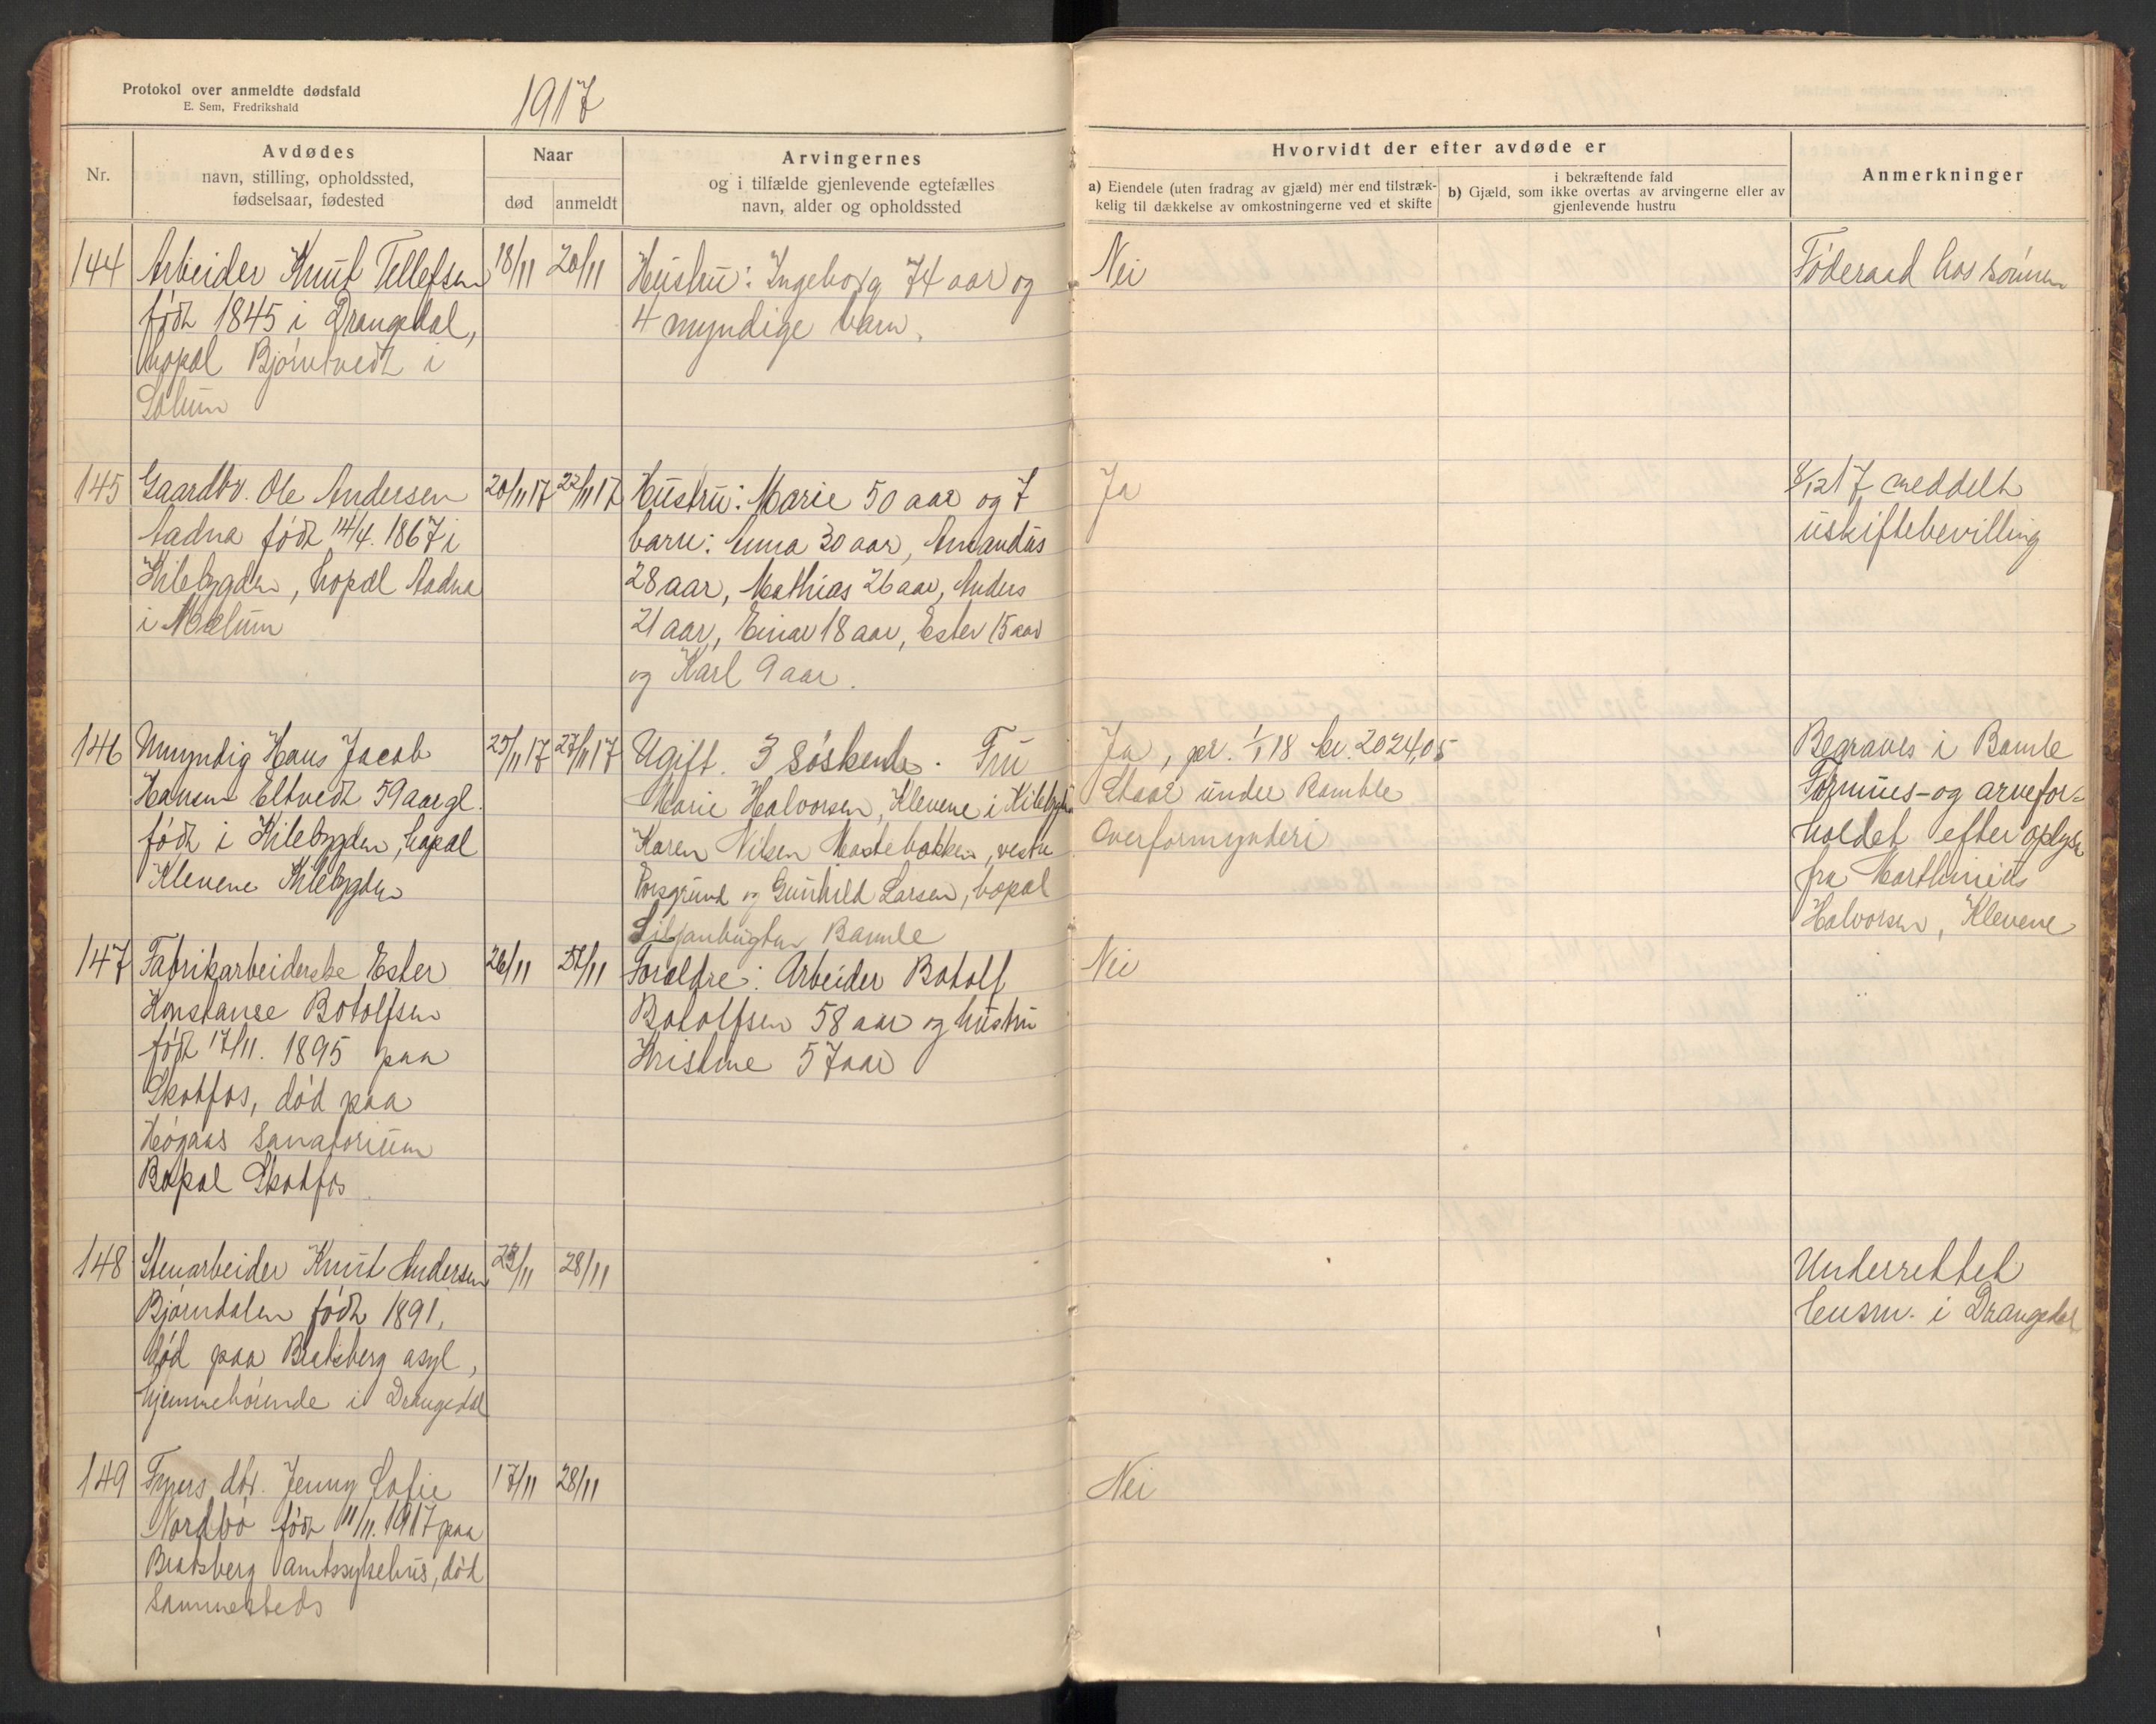 Protokol over anmeldte dødsfald
E. Sem, Fredrikshald
1917
Nr.
Avdødes
navn, stilling, opholdssted,
fødselsaar, fødested
Naar
død
anmeldt
Arvingernes
og i tilfælde gjenlevende egtefælles
navn, alder og opholdssted
Hvorvidt der efter avdøde er
a) Eiendele (uten fradrag av gjæld) mer end tilstræk-
kelig til dækkelse av omkostningerne ved et skifte
i bekræftende fald
b) Gjæld, som ikke overtas av arvingerne eller av
gjenlevende hustru
Anmerkninger
144
Arbeider Knut Tellefsen
født 1845 i Drangedal,
bopæl Bjørntvedt i
Solum
18/11
20/11
Hustru: Ingeborg 74 aar og
4 myndige barn.
Nei
Føderaad hos sønnen
145
Gaardbr. Ole Andersen
Aadna født 14/4. 1867 i
Kilebygden, bopæl Aadna
i Mælum
20/11 17
22/11 17
Hustru: Marie 50 aar og 7
barn: Anna 30 aar, Amandus
28 aar, Mathias 26 aar, Anders
21 aar, Einar 18 aar, Ester 15 aar
og Karl 9 aar.
Ja
8/12 17 meddelt
uskiftebevilling
146
Umyndig Hans Jacob
Hansen Eltvedt 59 aar gl.
født i Kilebygden, bopæl
Klevene Kilebygden
25/11 17
27/11 17
Ugift. 3 søskende. Fru
Marie Halvorsen, Klevene i Kilebygden
Karen Nilsen Mastebakken, vestre
Porsgrund og Gunhild Larsen, bopæl
Bamle
Ja, pr. 1/1 18 kr. 2024,05
Staar under Bamble
Overformynderi
Begraves i Bamle
Formues- og arvefor-
holdet efter oplysn
fra Marthinius
Halvorsen, Klevene
147
Fabrikarbeiderske Ester
Konstanse Botolfsen
født 17/11. 1895 paa
Skotfos, død paa
Høgaas sanatorium
Bopæl Skotfos
26/11
/11
Forældre: Arbeider Botolf
Botolfsen 58 aar og hustru
Kristine 57 aar
Nei
148
Stenarbeider Knut Andersen
Bjørndalen født 1891,
død paa Bratsberg asyl,
hjemmehørende i Drangedal
/11
28/11
Underrettet
lensm. i Drangedal
149
døt. Jenny Sofie
Nordbø født 11/11. 1917 paa
Bratsberg amtssykehus, død
sammesteds
17/11
28/11
Nei